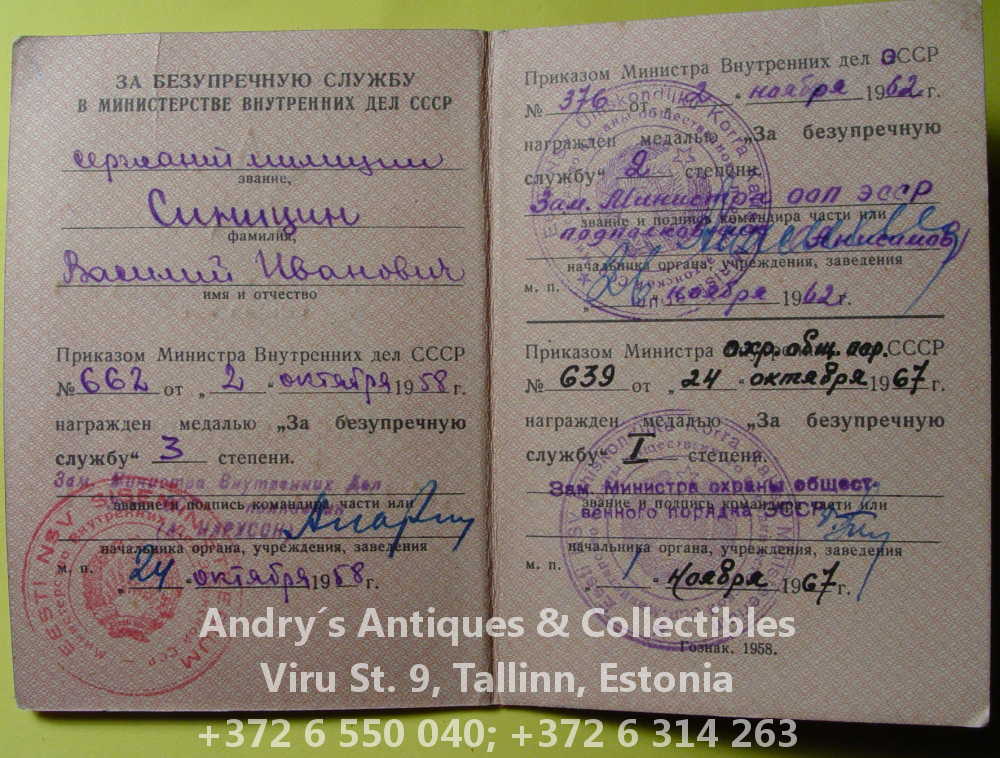 ЗА БЕЗУПРЕЧНУЮ СЛУЖБУ
В МИНИСТЕРСТВЕ ВНУТРЕННИХ ДЕЛ СССР
сержант милиции
звание,
Синицин
фамилия,
Василий Иванович
имя и отчество
Приказом Министра Внутренних дел СССР
№ 662 от „ 2 “ октября 1958 г.
награжден медалью „За безупречную
службу“ 3 степени.
Зам. Министра Внутренних Дел
звание и подпись командира части или
начальника органа, учреждения, заведения
м. п.
„ 24 “ октября 1958 г.
ESTI NSV SISEMINISTEERIUM
Приказом Министра Внутренних дел ЭССР
№ 376 от „ 2 “ ноября 1962 г.
награжден медалью „За безупречную
службу“ 2 степени.
Зам. Министра ООП ЭССР
звание и подпись командира части или
подполковник Анисимов
начальника органа, учреждения, заведения
м. п.
„ 26 “ ноября 1962 г.
Приказом Министра охр. общ. пор. СССР
№ 639 от „ 24 “ октября 1967 г.
награжден медалью „За безупречную
службу“ I степени.
Зам. Министра охраны общест-
звание и подпись командира части или
венного порядка ЭССР
начальника органа, учреждения, заведения
м. п.
„ 1 “ ноября 1967 г.
Гознак. 1958.
Andry´s Antiques & Collectibles
Viru St. 9, Tallinn, Estonia
+372 6 550 040; +372 6 314 263